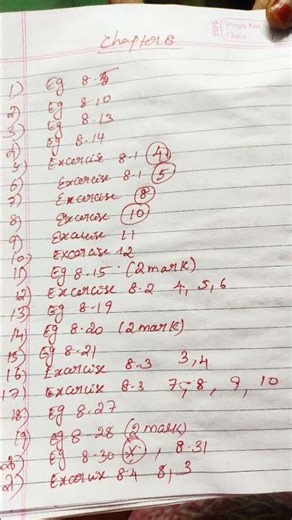 Page No
Date
Chapter 8
1) Eg 8.5
2) Eg 8.10
3) Eg 8.13
4) Eg 8.14
5) Exercise 8.1 4
6) Exercise 8.1 5
7) Exercise 8
8) Exercise 10
9) Exercise 11
10) Exercise 12
11) Eg 8.15 (2 mark)
12) Exercise 8.2 4, 5, 6
13) Eg 8.19
14) Eg 8.20 (2 mark)
15) Eg 8.21
16) Exercise 8.3 3, 4
17) Exercise 8.3 7, 8, 9, 10
18) Eg 8.27
19) eg 8.28 (2 mark)
20) Eg 8.30 x, 8.31
21) Exercise 8.4 8, 3